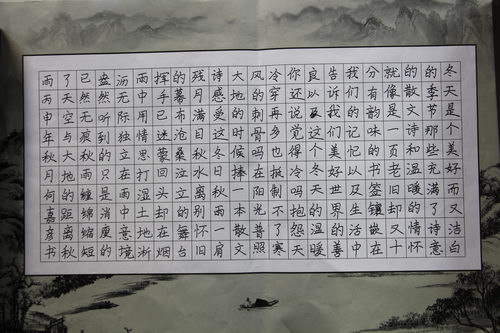 冬天是个美好而又洁白
的季节那些充满了诗意
的散文诗和温暖的情怀
就像是一页老旧却又十
分有韵味的书签镶嵌在
我们的记忆以及生活中
告诉我们美好世界的善
良以及这个冬天的温暖
你还说觉得冷吗抱怨天
冷穿再多也抵制不了寒
风的刺骨吗在阳光照
大地的时候捧一本散文
诗感受这时秋日一肩
残月满目秋水离别怀旧
的幕布沧桑泣立在舞台
挥手已迷蒙回头却在烟
雨中用情思打湿土地淅
沥无际独立在雨中意境
盎然听到的只是消的
已然无痕大雨缠绵缩短
了天空与大地的距离秋
雨 申年秋月何嘉彦书